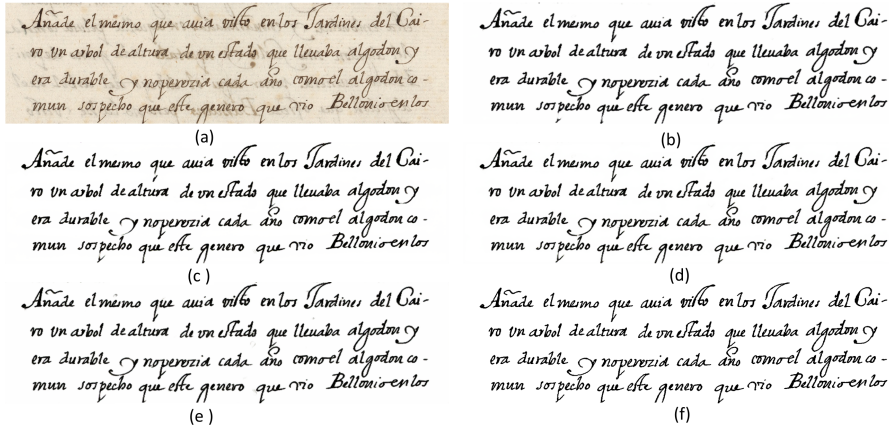 Añade el mesmo que auia visto en los Jardines del Cai-
ro vn arbol de altura de vn estado que lleuaba algodon y
era durable y no perezia cada año como el algodon co-
mun sospecho que este genero que vio Bellonio en los
(a)
Añade el mesmo que auia visto en los Jardines del Cai-
ro vn arbol de altura de vn estado que lleuaba algodon y
era durable y no perezia cada año como el algodon co-
mun sospecho que este genero que vio Bellonio en los
(b)
Añade el mesmo que auia visto en los Jardines del Cai-
ro vn arbol de altura de vn estado que lleuaba algodon y
era durable y no perezia cada año como el algodon co-
mun sospecho que este genero que vio Bellonio en los
(c)
Añade el mesmo que auia visto en los Jardines del Cai-
ro vn arbol de altura de vn estado que lleuaba algodon y
era durable y no perezia cada año como el algodon co-
mun sospecho que este genero que vio Bellonio en los
(d)
Añade el mesmo que auia visto en los Jardines del Cai-
ro vn arbol de altura de vn estado que lleuaba algodon y
era durable y no perezia cada año como el algodon co-
mun sospecho que este genero que vio Bellonio en los
(e )
Añade el mesmo que auia visto en los Jardines del Cai-
ro vn arbol de altura de vn estado que lleuaba algodon y
era durable y no perezia cada año como el algodon co-
mun sospecho que este genero que vio Bellonio en los
(f)